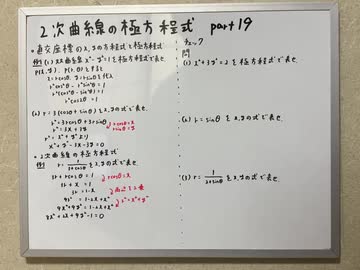 2次曲線の極方程式 part19
・直交座標のx,yの方程式と極方程式
例1 (1) 2次曲線 x²-y²=1を極方程式で表せ.
P(x,y), P(r,θ)とすると
x=rcosθ, y=rsinθを代入
r²cos²θ-r²sin²θ=1
r²(cos²θ-sin²θ)=1
r²cos2θ=1
(2) r=3(cosθ+sinθ)をx,yの式で表せ.
r²=3rcosθ+3rsinθ
rcosθ=x
rsinθ=y
r²=3x+3y
r²=x²+y²より
x²+y²-3x-3y=0
・2次曲線の極方程式
r=1/(3+cosθ)をx,yの式で表せ.
3r+rcosθ=1
rcosθ=x
3r+x=1
3r=1-x
両辺を2乗
9r²=1-2x+x²
r²=x²+y²
9x²+9y²=1-2x+x²
8x²+2x+9y²-1=0
チェック
問
(1) x²+3y²=2を極方程式で表せ.
(2) r=sinθをx,yの式で表せ.
(3) r=1/(2+cosθ)をx,yの式で表せ.